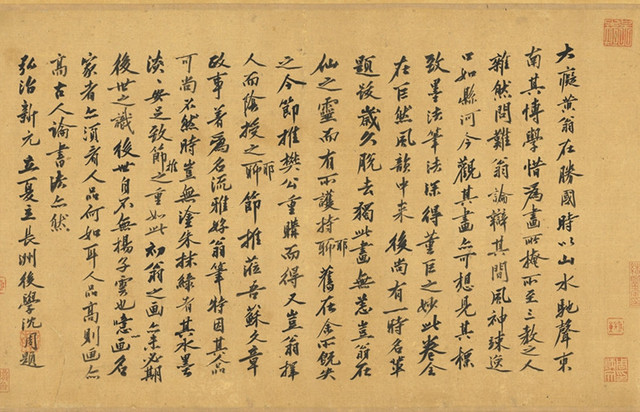 大癡黃翁在勝國時以山水馳聲東
南其博學惜為畫所掩所至三教之人
雜然問難翁論辯其間風神竦逸
口如縣河今觀其畫亦可想見其標
致墨法筆法深得董巨之妙此卷全
在巨然風韻中來後尚有一時名輩
題跋歲久脫去獨此畫無恙豈翁在
仙之靈而有所護持耶舊在余所既失
之今節推樊公重購而得又豈翁擇
人而陰授之耶節推蒞吾蘇文章
政事著為名流雅好翁筆特因其人品
可尚不然時豈無塗朱抹綠者其水墨
淡淡安足致節推之重如此初翁之画亦未必期
後世之識後世自不無揚子雲也噫以画名
家者亦須看人品何如耳人品高則画亦
高古人論書法亦然
弘治新元立夏長洲後學沈周題